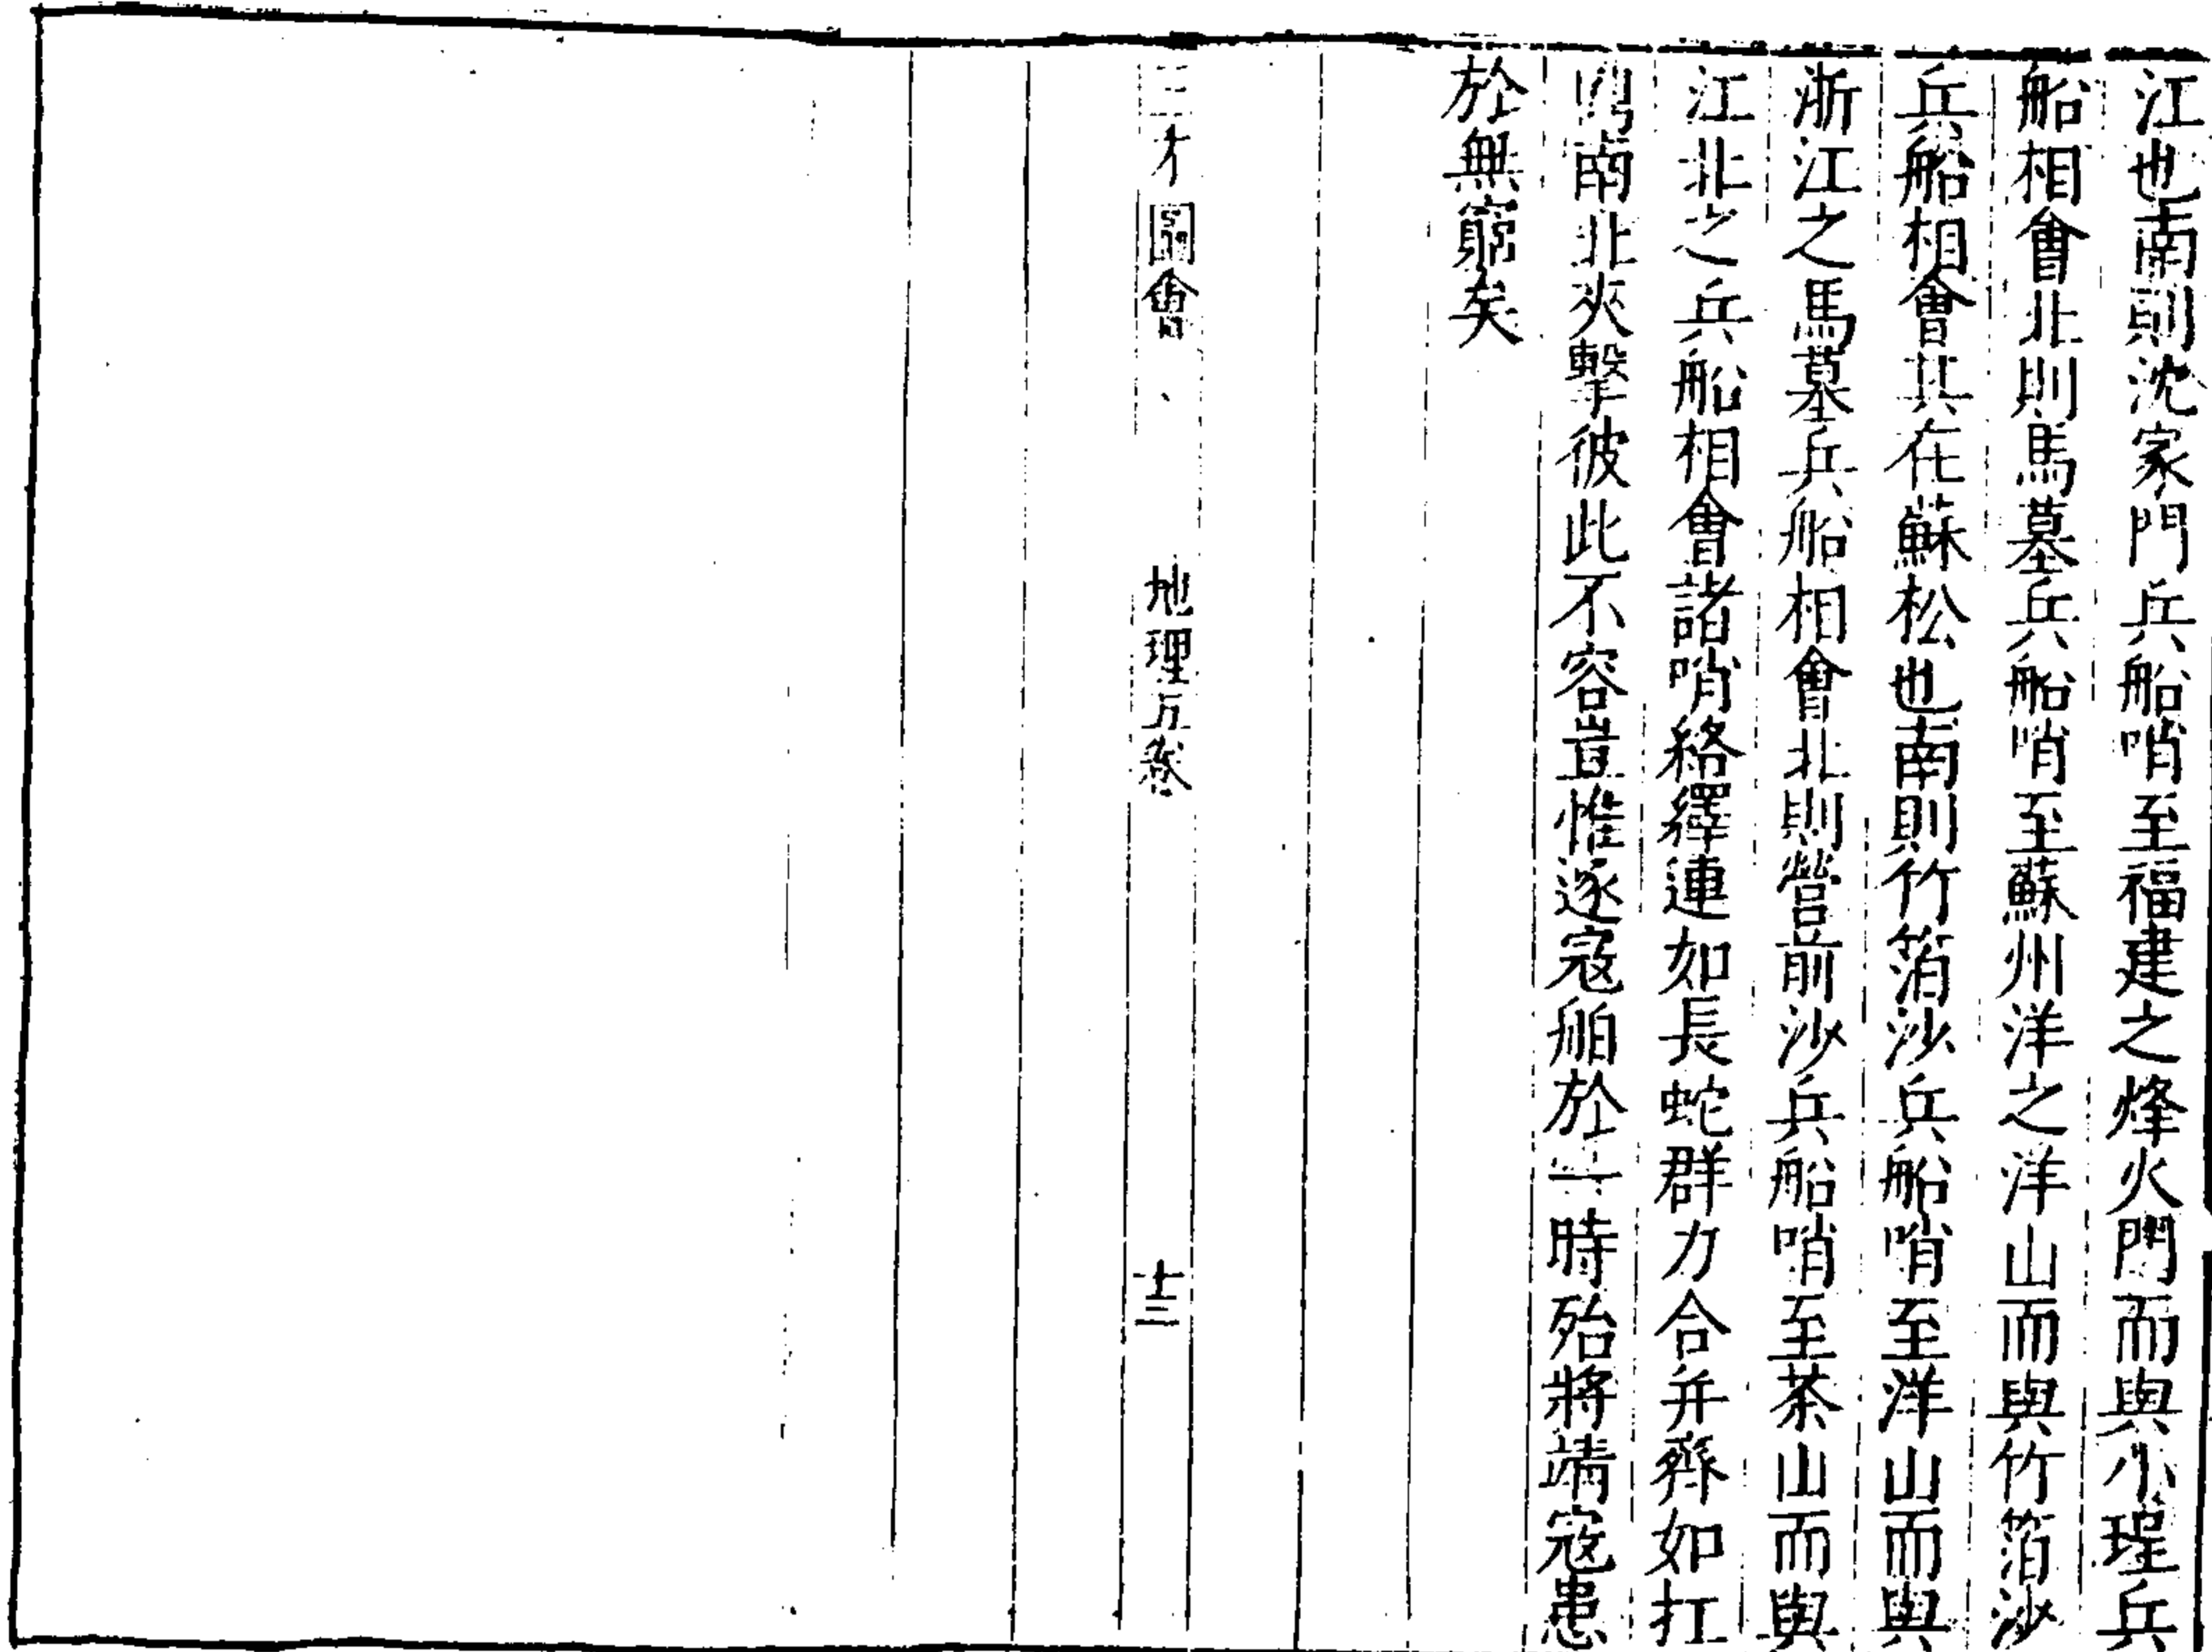 江也南則沈家門兵船哨至福建之烽火門而與小埕兵
船相會北則馬墓兵船哨至蘇州洋之洋山而與竹箔沙
兵船相會其在蘇松也南則竹箔沙兵船哨至洋山而與
浙江之馬墓兵船相會北則營前沙兵船哨至茶山而與
江北之兵船相會諸哨絡繹連如長蛇群力合并齊如扛
鼎南北夾擊彼此不容豈惟逐寇舶於一時殆將靖寇患
於無窮矣
三才圖會
地理五卷
十三